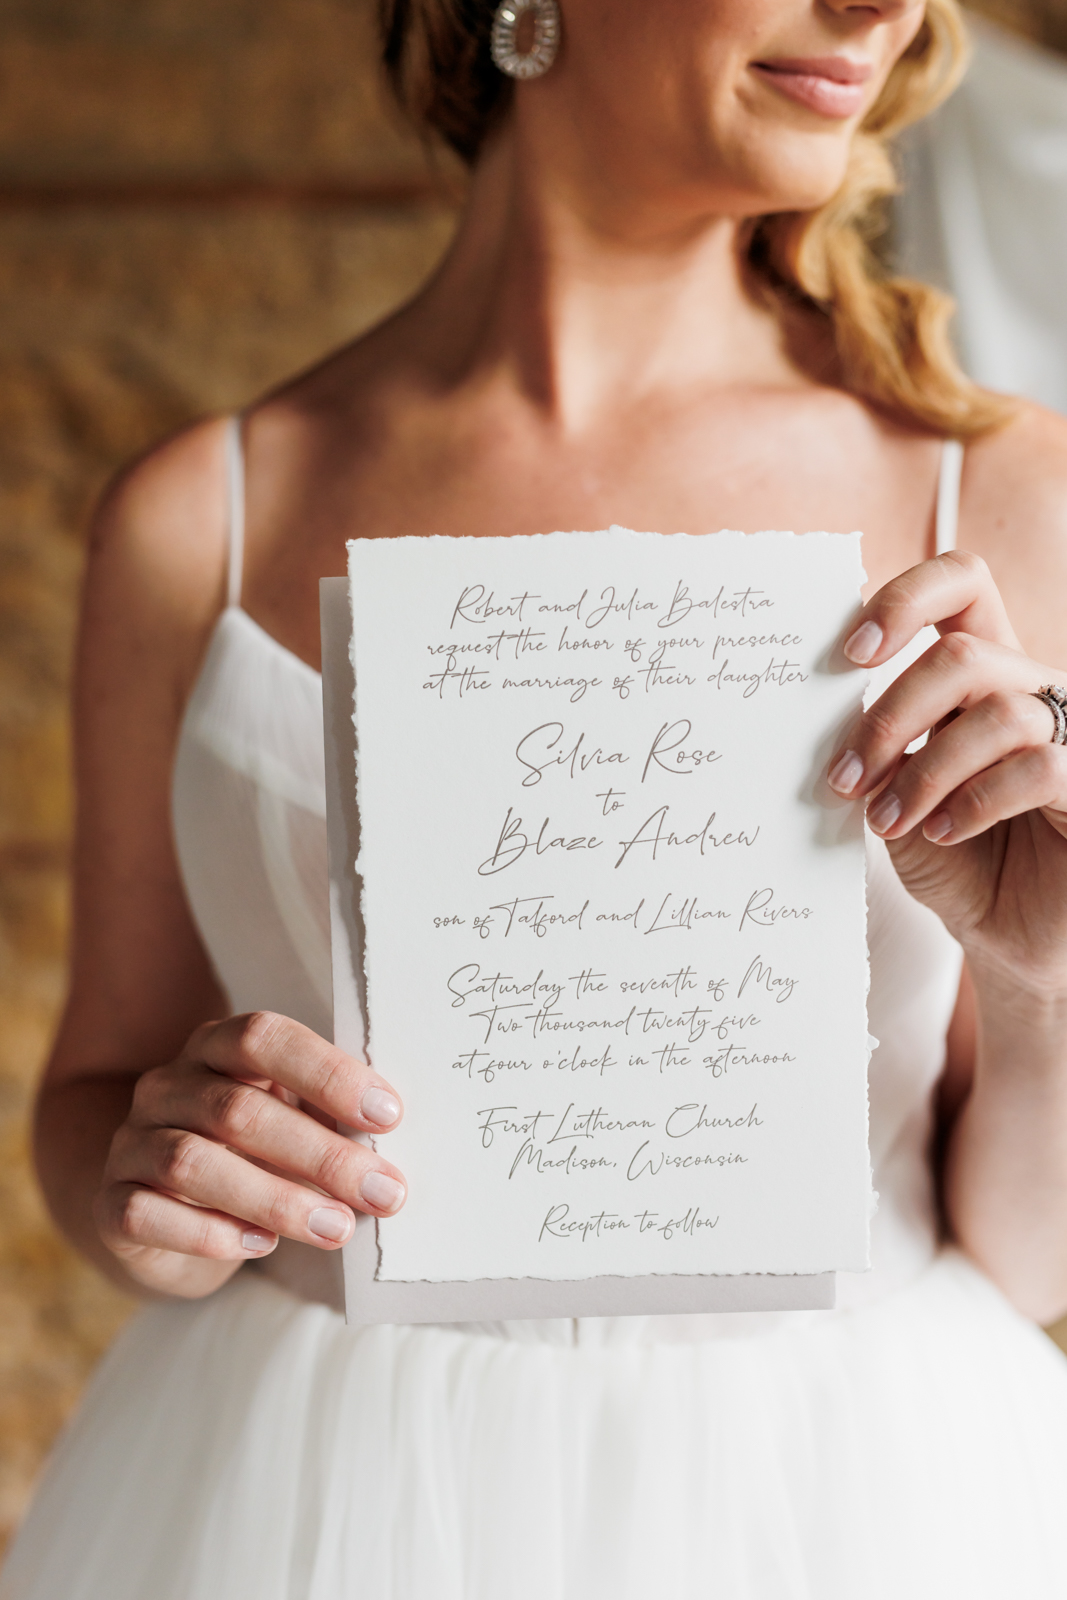 Robert and Julia Balestra
request the honor of your presence
at the marriage of their daughter
Silvia Rose
to
Blaze Andrew
son of Talford and Lillian Rivers
Saturday the seventh of May
Two thousand twenty five
at four o'clock in the afternoon
First Lutheran Church
Madison, Wisconsin
Reception to follow